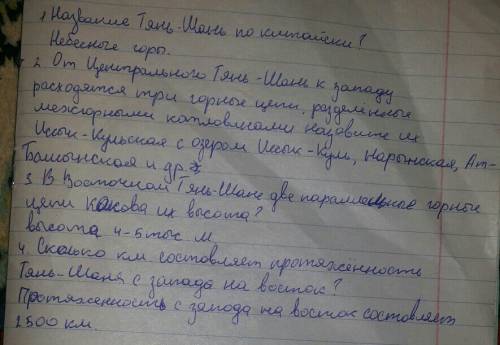 1 Название Тянь-Шань по китайски?
Небесные горы.
2. От Центрального Тянь-Шань к западу
расходятся три горные цепи, разделенные
межгорными котловисами назовите их
Иссык-Кульская с озером Иссык-Куль, Нарынская, Ат-
Башынская и др.
3. В Восточном Тянь-Шане две параллельные горные
цепи какова их высота?
высота 4-5 тыс м
4. Сколько км составляет протяжённость
Тянь-Шаня с запада на восток?
Протяженность с запада на восток составляет
2500 км